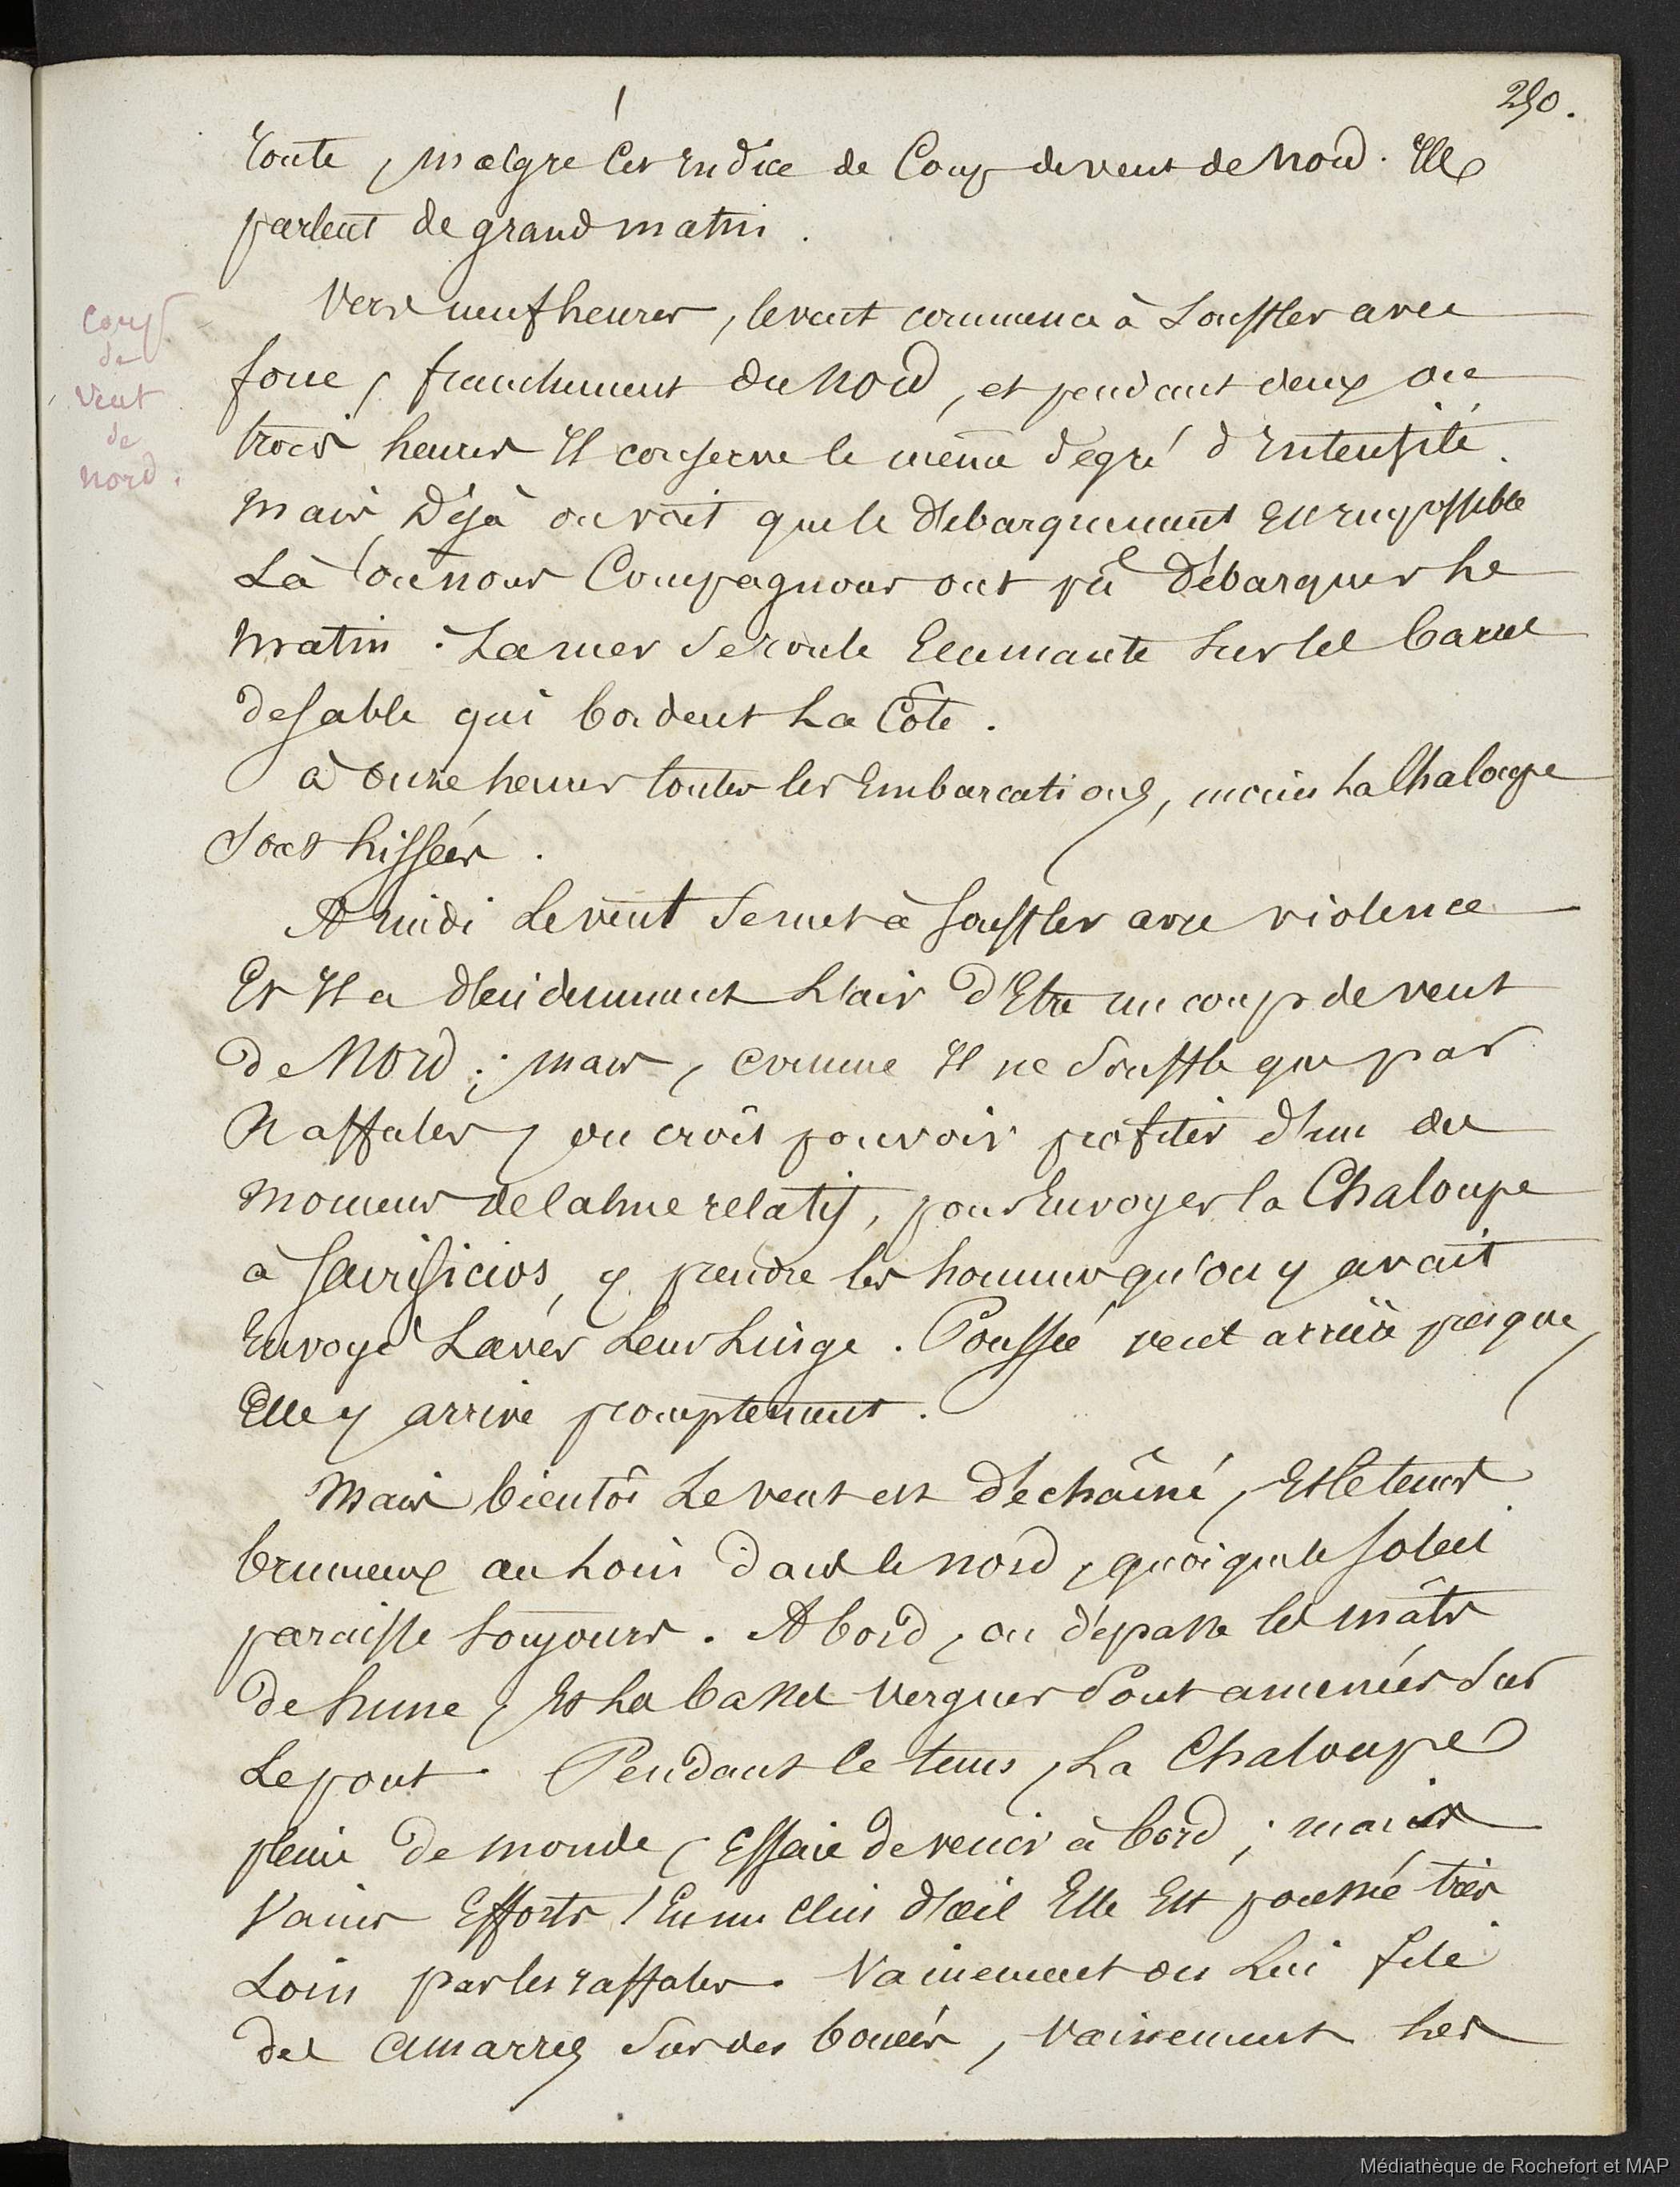 290.
toute, malgré les indice de Coup de vent de Nord. Ils
partent de grand matin.
Coup
de
Vent
de
Nord.
Vers neuf heures, le vent commence à Souffler avec
force, franchement du Nord, et pendant deux ou
trois heures Il conserve le même dégré d'Intensité.
Mais Déjà on voit que le débarquement Est impossible
Là où nous Compagnons ont pû débarquer Le
Matin. La mer Se roule Ecumante Sur les bancs
de sable qui bordent La Côte.
à onze heures toutes les Embarcations, moins La Chaloupe
Sont hissées.
A midi Le vent Se met à Souffler avec violence
Et Il a décidemment L'air d'Etre un coup de vent
de Nord; mais, comme Il ne Souffle que par
Raffales, on croit pouvoir profiter d'un des
Momens de calme relatif, pour Envoyer la Chaloupe
à Sacrificios, y prendre les hommes qu'on y avait
Envoyé Laver Leur Linge. Poussée vent arrière presque,
Elle y arrive promptement.
Mais bientôt Le vent est déchaîné, Et le tems
brumeux au Loin dans le nord, quoique le Soleil
paraisse toujours. A bord, on dépasse les mâts
de hune, Et La basses vergues Sont amenées Sur
Le pont. Pendant ce tems, La Chaloupe
pleine de monde, Essaie de venir à bord; mais
Vains Efforts! En un clin d'œil Elle Est poussé très
Loin par les raffales. Vainement on Lui file
des amarres Sur des bouées, vainement Les
Médiathèque de Rochefort et MAP